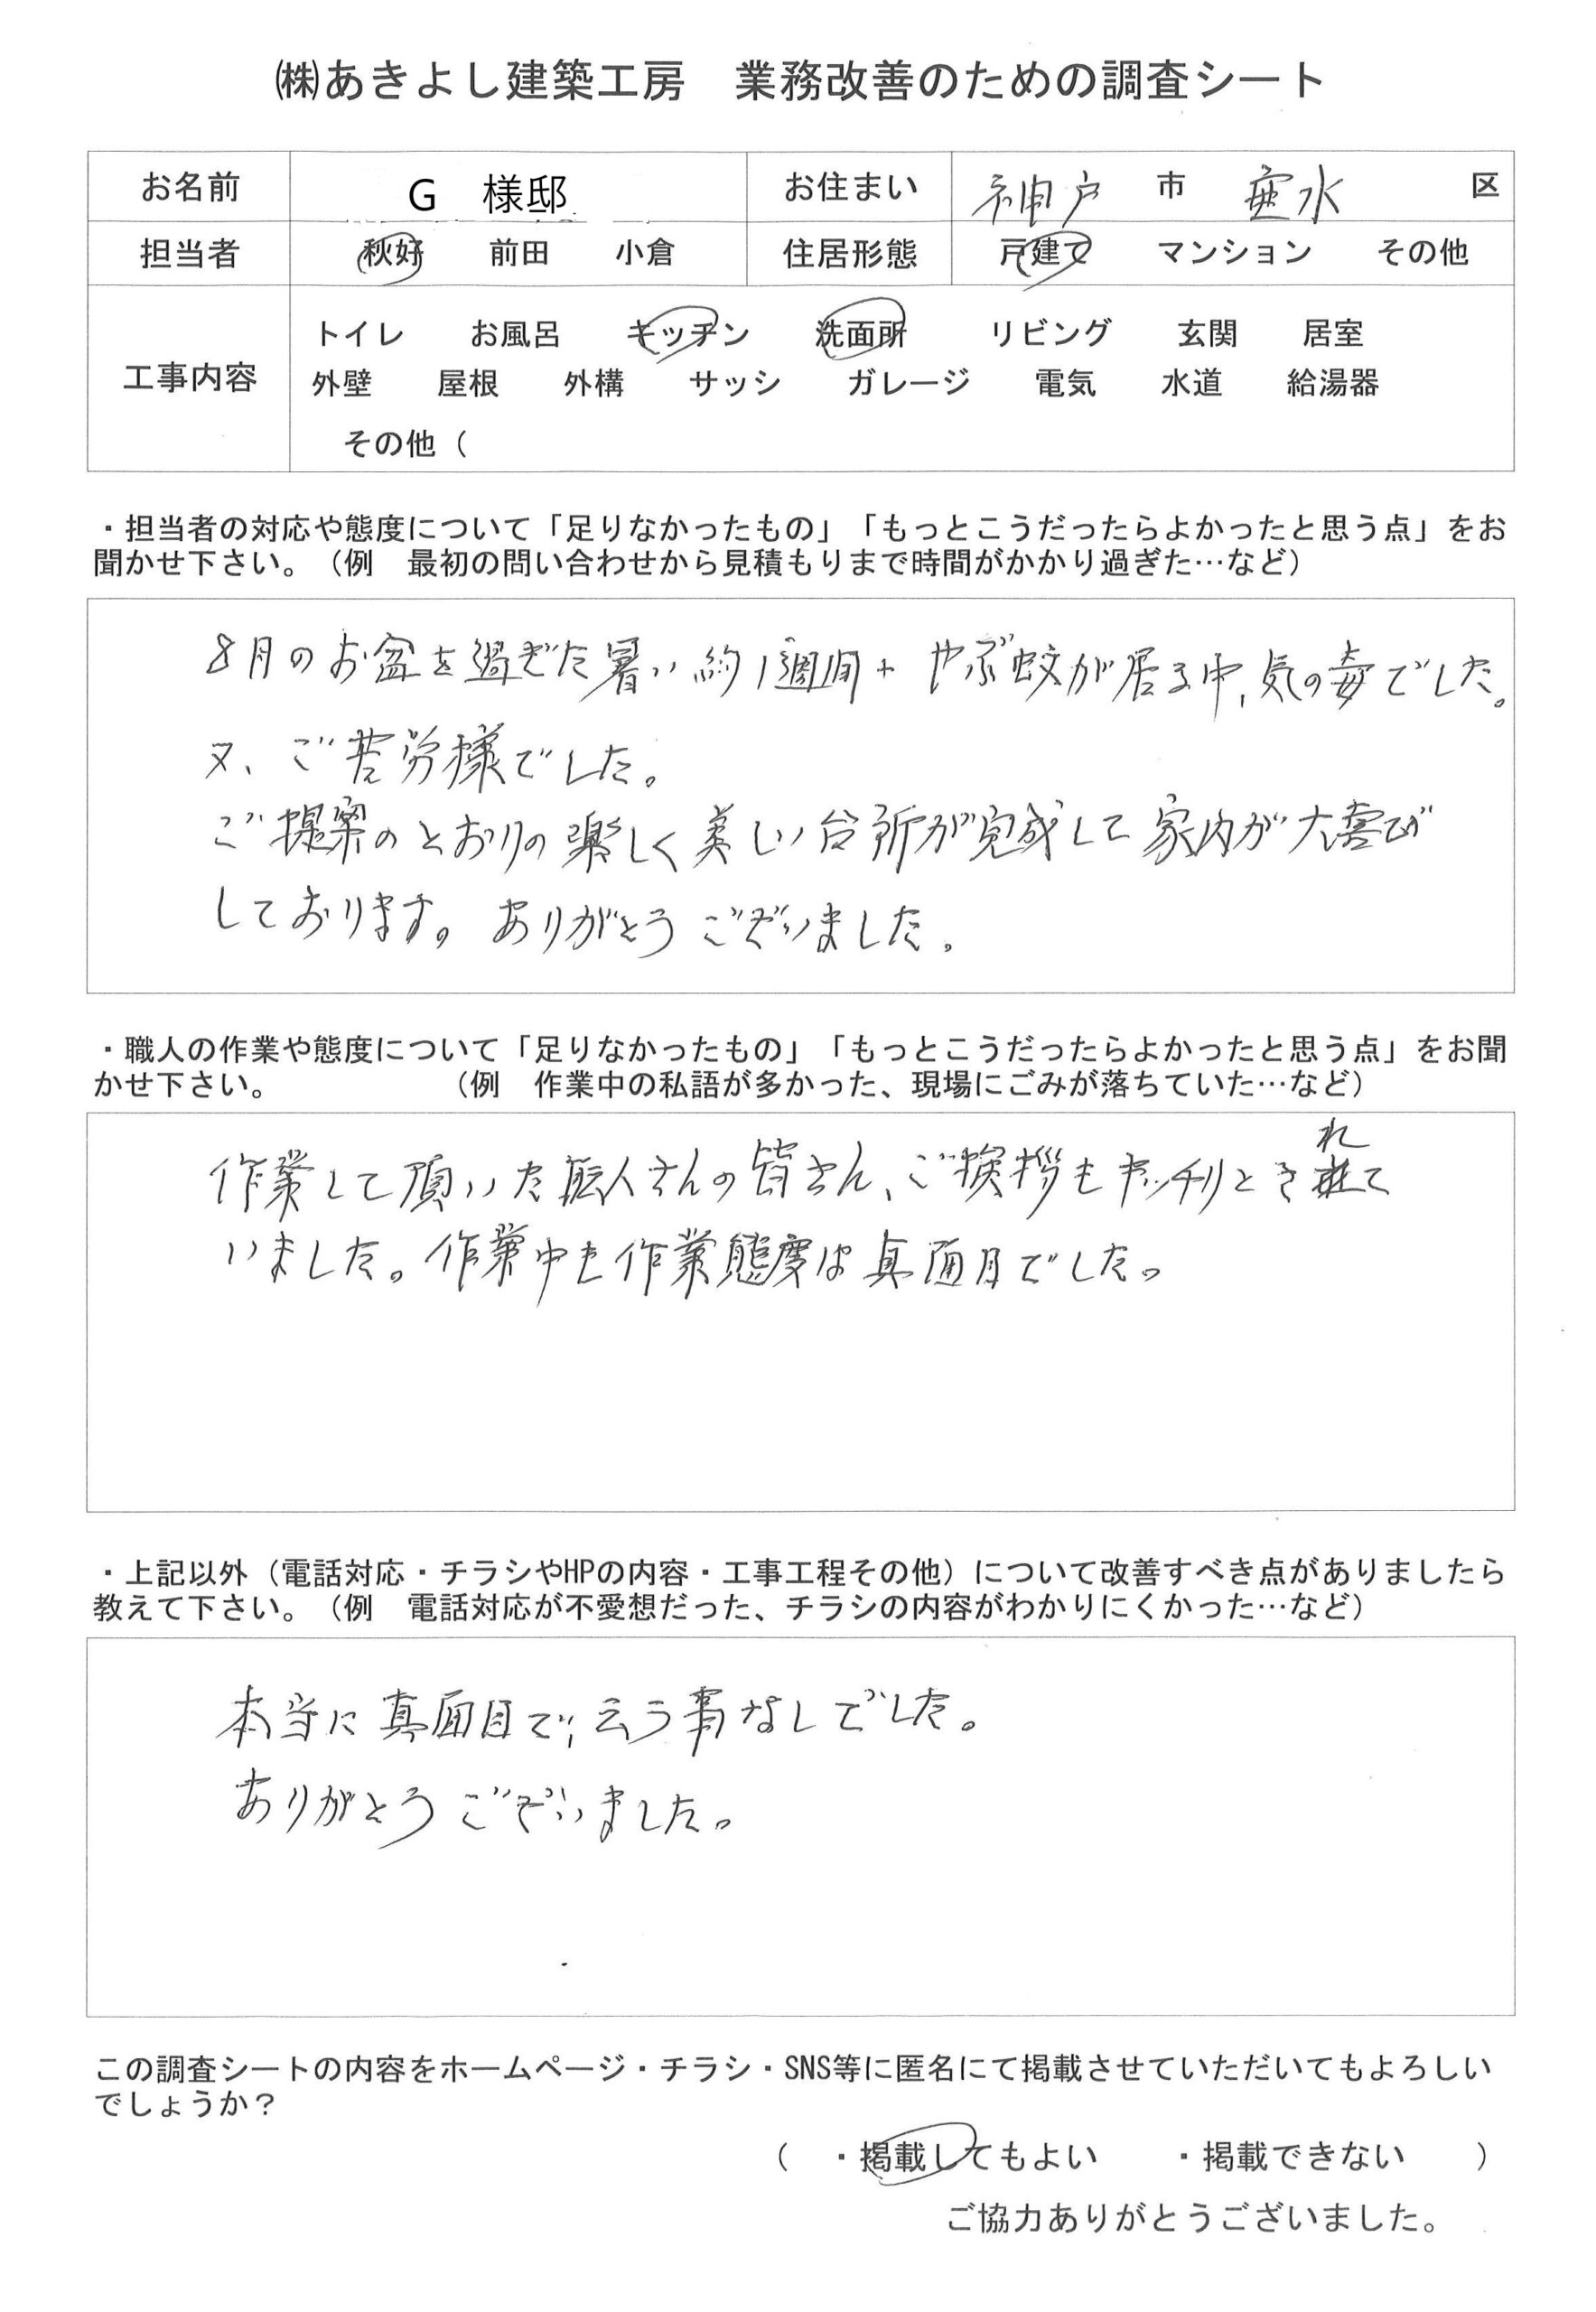 ㈱あきよし建築工房　業務改善のための調査シート
お名前　G　様邸　お住まい　神戸　市　垂水　区
担当者　秋好　前田　小倉　住居形態　戸建て　マンション　その他
工事内容
トイレ　お風呂　キッチン　洗面所　リビング　玄関　居室
外壁　屋根　外構　サッシ　ガレージ　電気　水道　給湯器
その他（
・担当者の対応や態度について「足りなかったもの」「もっとこうだったらよかったと思う点」をお
聞かせ下さい。（例　最初の問い合わせから見積もりまで時間がかかり過ぎた…など）
8月のお盆を過ぎた暑い約1週間+やぶ蚊が居る中、気の毒でした。
又、ご苦労様でした。
ご提案のとおりの楽しく美しい台所が完成して家内が大喜び
しております。ありがとうございました。
・職人の作業や態度について「足りなかったもの」「もっとこうだったらよかったと思う点」をお聞
かせ下さい。　（例　作業中の私語が多かった、現場にごみが落ちていた…など）
作業して頂いた職人さんの皆さん、ご挨拶もキッチリとされて
いました。作業中も作業態度は真面目でした。
・上記以外（電話対応・チラシやHPの内容・工事工程その他）について改善すべき点がありましたら
教えて下さい。（例　電話対応が不愛想だった、チラシの内容がわかりにくかった…など）
本当に真面目で、云う事なしでした。
ありがとうございました。
この調査シートの内容をホームページ・チラシ・SNS等に匿名にて掲載させていただいてもよろしい
でしょうか？
（　・掲載してもよい　・掲載できない　）
ご協力ありがとうございました。